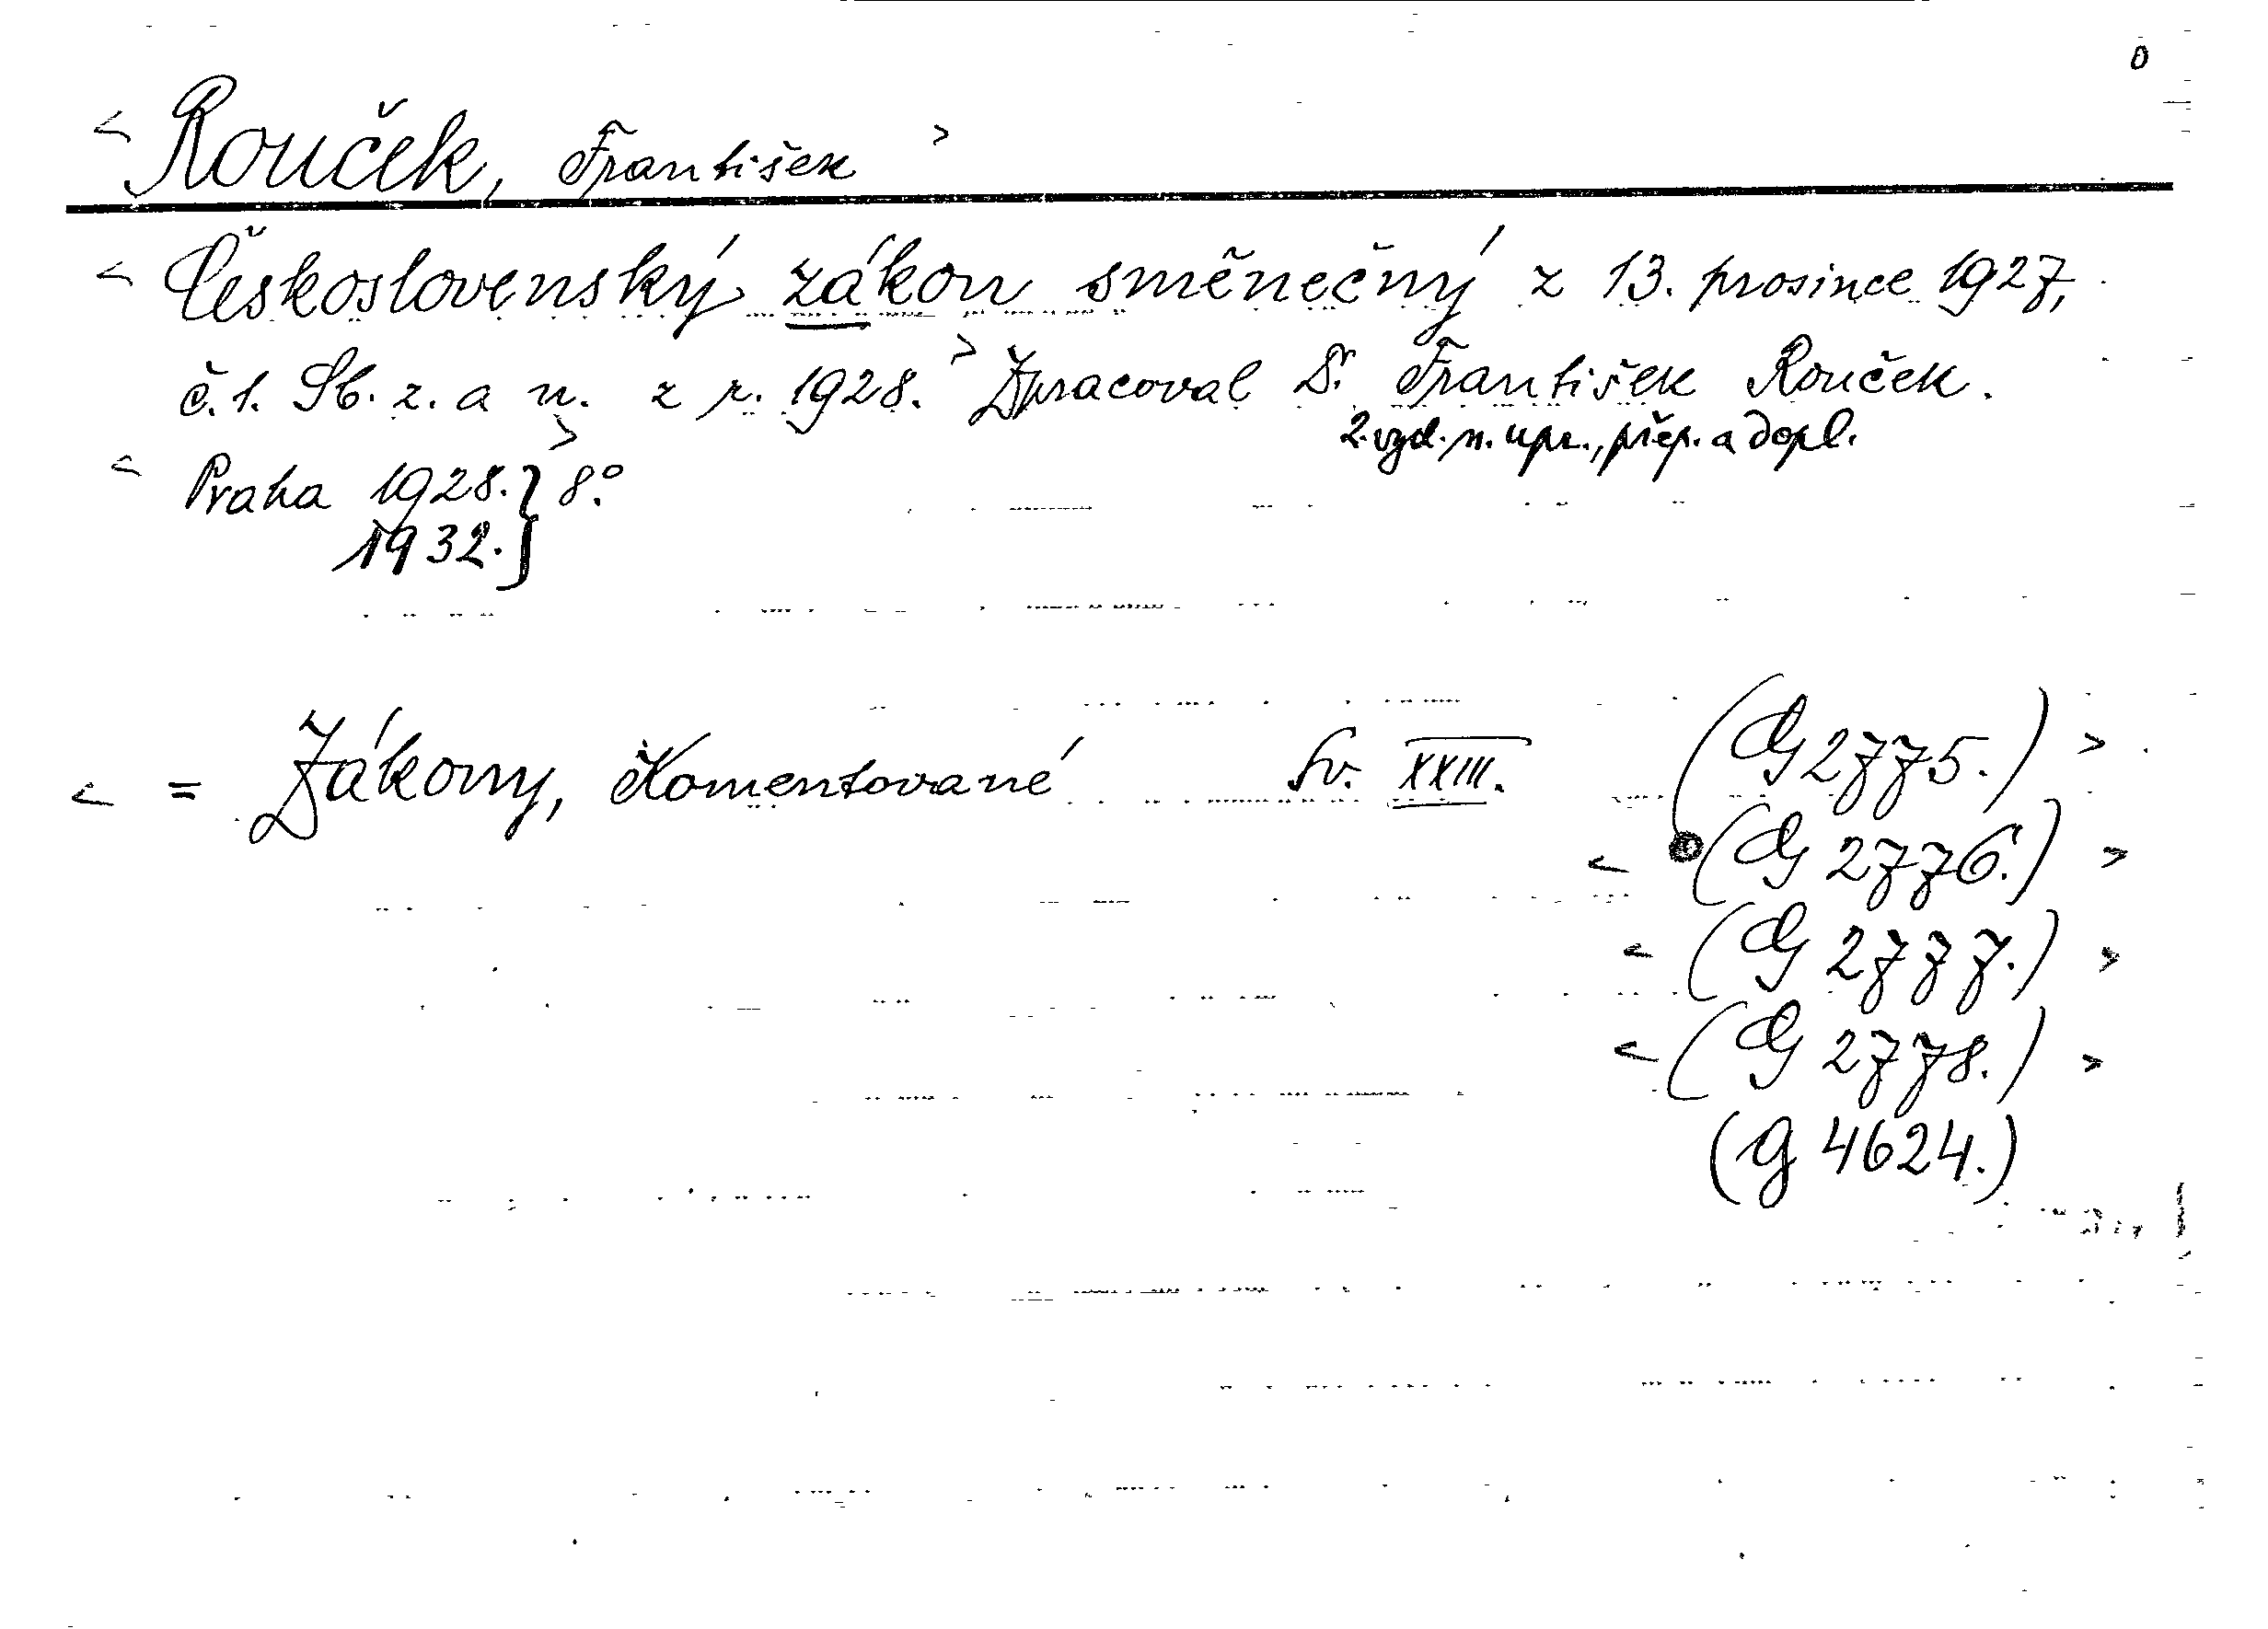 0
< Rouček, František >
< Československý zákon směnečný z 13. prosince 1927,
č. 1. Sb. z. a n. z r. 1928. > Zpracoval Dr. František Rouček.
2. vyd. n. upr., přep. a dopl.
< Praha 1928.} > 8°.
1932.}
< = Zákony, Komentované Sv. XXIII. (G 2775.) >
< (G 2776.) >
< (G 2777.) >
< (G 2778.) >
(g 4624.)